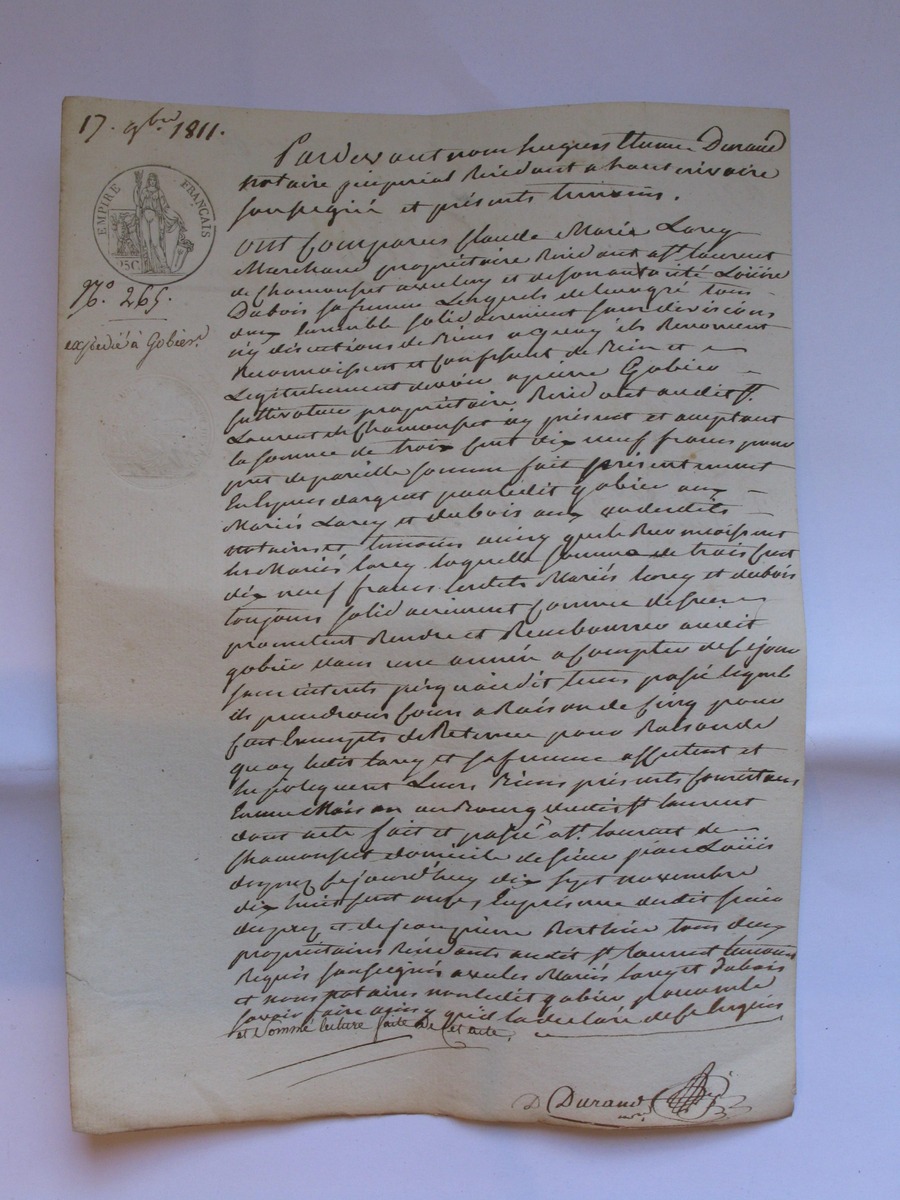 17. 9bre 1811.
EMPIRE FRANÇAIS
25C
N.o 265.
expédié à Gobier.
Pardevant nous hugues Durand
notaire impérial Résidant a haut
soussigné et présents temoins.
Ont Comparus Claude Marie Larey
Marchand propriétaire Résidant a st. laurent
de Chamousset avec lui et de son autorité Loüise
Dubois sa femme Lesquels de leur gré tous
deux Ensemble solidairement sans divisions
ny discutions de Biens a quoy ils Renoncent
Reconnoissent et Confessent de Bien et
Legitimement devoir a pierre Gobier
Cultivateur propriétaire Résidant audit st.
Laurent de Chamousset icy présent et acceptant
la somme de trois Cent dix neuf francs pour
pret de pareille somme fait présentement
En Espèces d'argent par ledit gobier aux
Mariés Larey et dubois aux vu desdits
notaires et temoins ainsy que le Reconnoissent
les Mariés larey laquelle somme de trois Cent
dix neuf francs lesdits Mariés larey et dubois
toujours solidairement Comme dessus
promettent Rendre et Rembourser audit
gobier dans une année a Compter de Ce jour
sans interets jusqu'audit tems passé lequel
ils prendront Cours a Raison de Cinq pour
Cent Exempts de Retenue pour Raison de
quoy ledit larey et sa femme affectent et
hipotequent Leurs Biens présents Consistans
En une Maison au Bourg dudit st laurent
dont acte fait et passé a st. laurent de
Chamousset domicile de sieur jean Loüis
dupuy Ce jourd'huy dix sept novembre
dix huit Cent onze, En présence dudit sieur
dupuy et de jean pierre Berthier tous deux
propriétaires Résidants audit st laurent temoins
Requis soussignés avec les Mariés larey et dubois
et nous notaires non ledit gobier pour ne le
savoir faire ainsy qu'il l'a declaré de Ce Enquis
et Sommé lecture faite de Cet acte,
D Durand